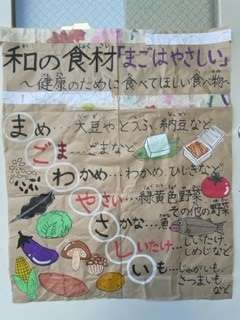 和の食材「まごはやさしい」
～健康のために食べてほしい食べ物～
まめ…大豆やとうふ、納豆など
ごま…ごまなど
わかめ…わかめ、ひじきなど
やさい…緑黄色野菜
その他の野菜
さかな…魚
しいたけ…しいたけ、
しめじなど
いも…じゃがいも
さつまいもなど